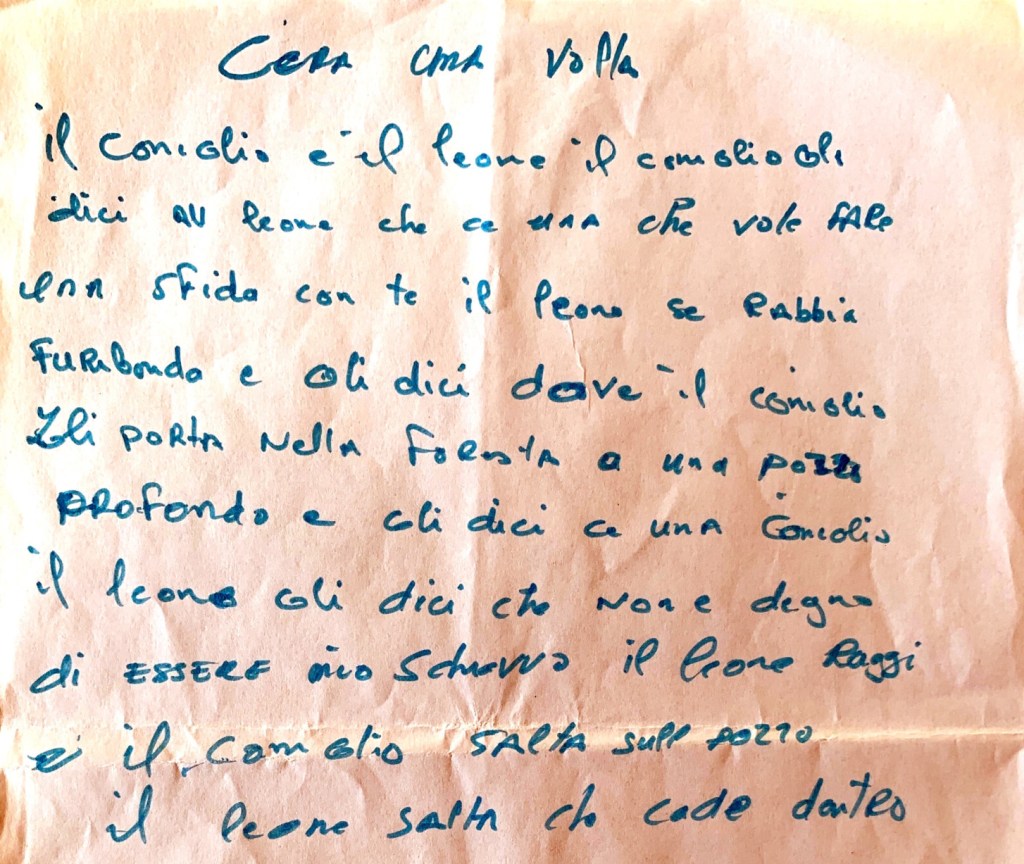 Cera una volta
il coniglio e il leone il coniglio gli
dici au leone che ce una che vole fare
una sfida con te il leone se rabbia
furibonda e gli dici dove il coniglio
gli porta nella foresta a una pozzo
profondo e gli dici ce una coniglio
il leone gli dici che non e degno
di ESSERE mio schiavvo il leone Raggi
e il coniglio salta sull pozzo
il leone salta che cade dentro